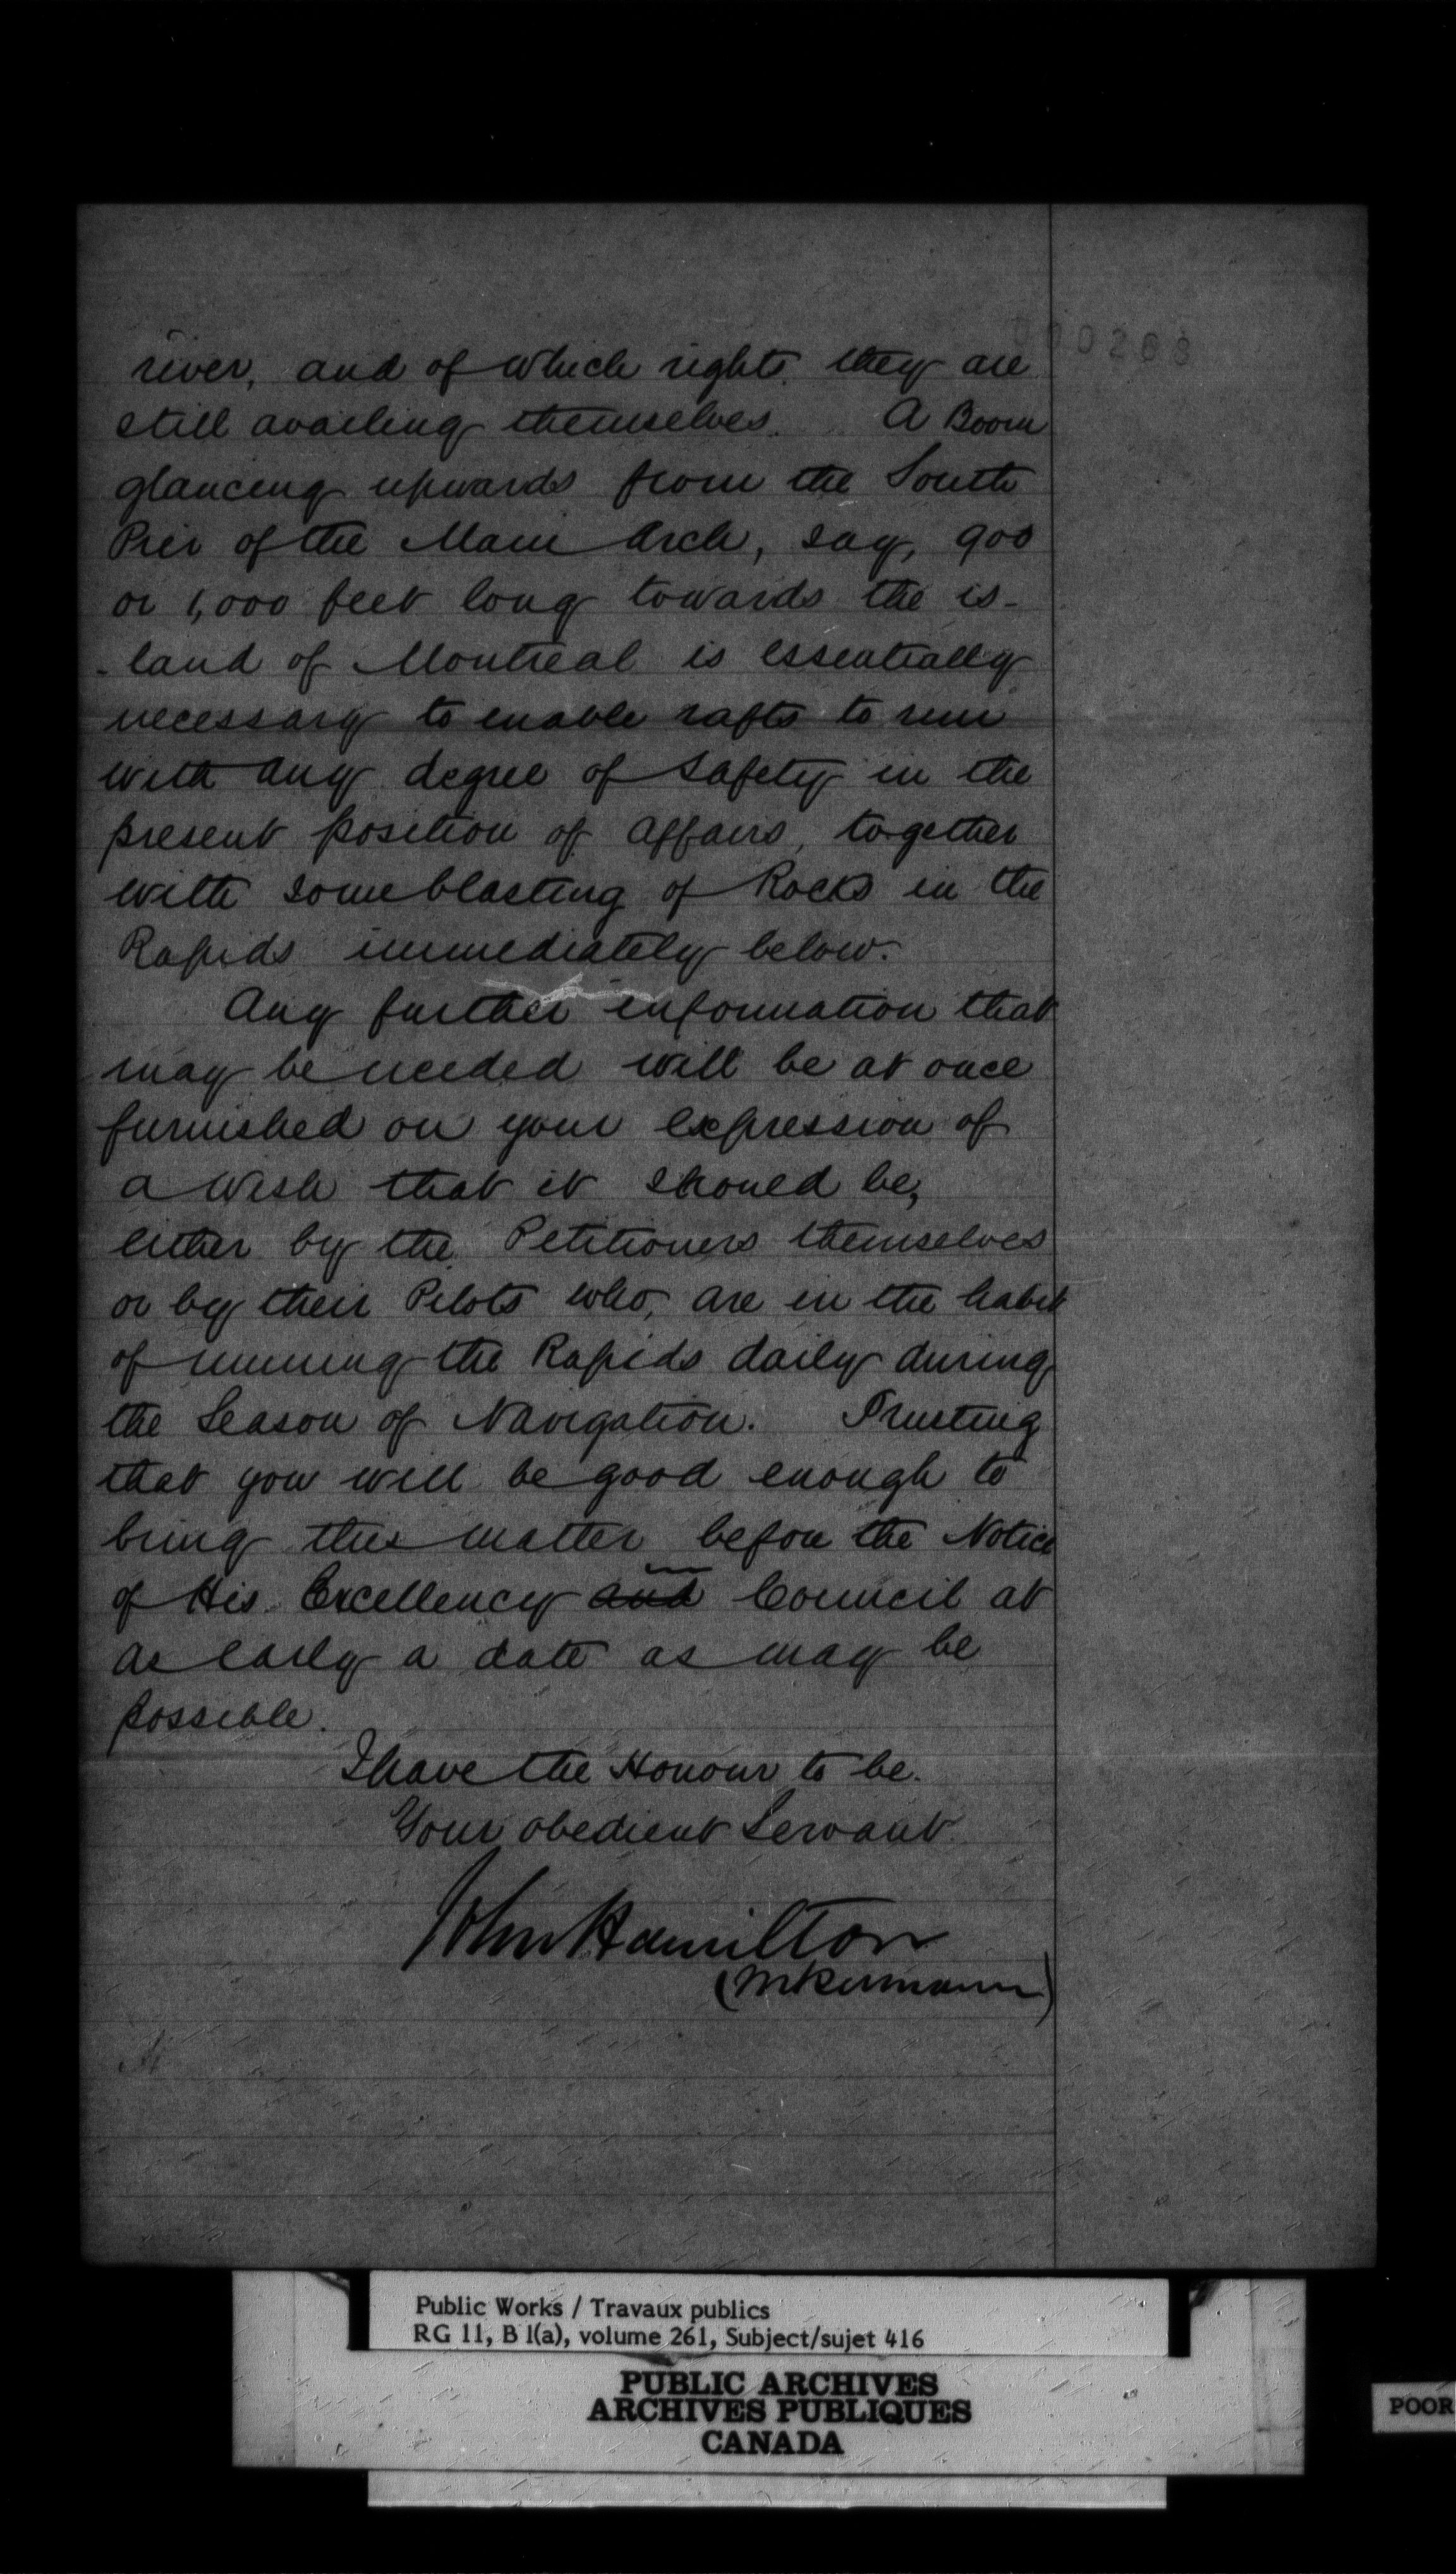 000268
river, and of which rights they are
still availing themselves. A Boom
glancing upwards from the South
Pier of the Main Arch, say, 900
or 1,000 feet long towards the is-
-land of Montreal is essentially
necessary to enable rafts to run
with any degree of safety in the
present position of affairs, together
with some blasting of Rocks in the
Rapids immediately below.
Any further information that
may be needed will be at once
furnished on your expression of
a wish that it should be,
either by the Petitioners themselves
or by their Pilots who, are in the habit
of running the Rapids daily during
the Season of Navigation. Trusting
that you will be good enough to
bring this matter before the Notice
of His Excellency and in Council at
as early a date as may be
possible.
I have the Honour to be.
Your obedient Servant
John Hamilton
Public Works / Travaux publics
RG 11, B 1(a), volume 261, Subject/sujet 416
PUBLIC ARCHIVES
ARCHIVES PUBLIQUES
CANADA
POOR